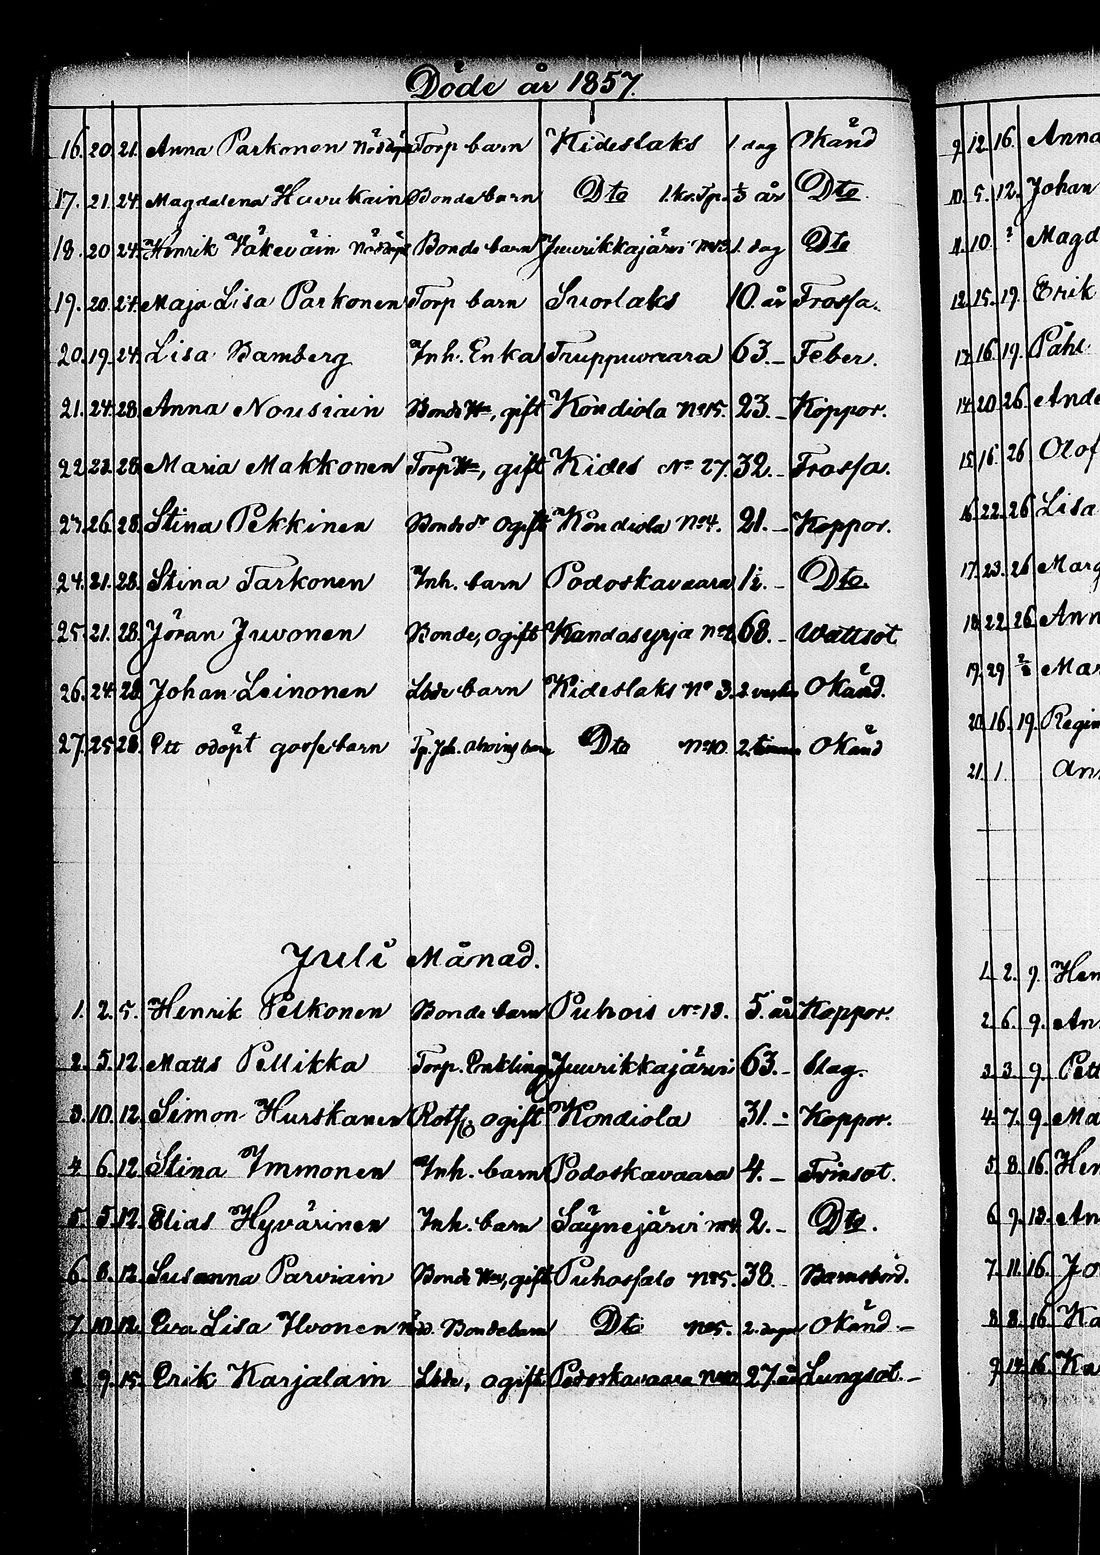 Döde år 1857.
16. 20. 21. Anna Parkonen Nöddöpt Torp barn Kideslaks 1 dag Okänd
17. 21. 24. Magdalena Havukain Bonde barn Dto 1/3 år Dto
18. 20. 24. Henrik Väkeväin Nöddöpt Bonde barn Juurikkajärvi No 3. 1. dag Dto
19. 20. 24. Maja Lisa Parkonen Torp barn Suorlaks 10. år Frossa.
20. 19. 24. Lisa Bamberg Inh. Enka Truppuvaara 63. - Feber.
21. 24. 28. Anna Nousiain Bonde Hu, gift Kondiola No 15. 23. - Koppor.
22. 23. 28. Maria Makkonen Torp Hu, gift Kides No 27. 32. - Frossa.
23. 26. 28. Stina Pekkinen Bonde dr ogift Kondiola No 4. 21. - Koppor.
24. 21. 28. Stina Tarkonen Inh. barn Podoskavaara 1½. - Dto.
25. 21. 28. Jöran Juvonen Bonde, ogift Kandosyrja No 2. 68. - Wattsot
26. 24. 28. Johan Leinonen Lbde barn Kideslaks No 3. 2 veckor Okänd.
27. 25. 28. Ett odöpt gossebarn Tp. Joh. barn Dto No 10. 2 timmar Okänd
Juli Månad.
1. 2. 5. Henrik Pelkonen Bonde barn Puhois No 18. 5. år Koppor.
2. 5. 12. Matts Pellikka Torp. Enkling Juurikkajärvi 63. - Slag.
3. 10. 12. Simon Hurskanen Rotf ogift Kondiola 31. - Koppor.
4. 6. 12. Stina Immonen Inh. barn Podoskavaara 4. - Trinsot.
5. 5. 12. Elias Hyvärinen Inh. barn Säynejärvi No 4. 2. - Dto.
6. 8. 12. Susanna Parviain Bonde Hu, gift Puhossalo No 5. 38. - Barnsbörd.
7. 10. 12. Eva Lisa Ilvonen nöd. Bondebarn Dto No 5. 2. dagar Okänd -
8. 9. 15. Erik Karjalain Lbde, ogift Podoskavaara No 12 27 år Lungsot. -
9. 12. 16. Anna
10. 5. 12. Johan
11. 10. ? Magd
12. 15. 19. Erik
13. 16. 19. Påhl
14. 20. 26. Ande
15. 16. 26 Olof
16. 22. 26. Lisa
17. 23. 26 Marg
18. 22. 26. Ann
19. 29. 2/8 Mar
20. 16. 19. Regin
21. 1. Ann
1. 2. 9. Hen
2. 6. 9. Ann
3. 3. 9. Pett
4. 7. 9. Ma
5. 8. 16. Hen
6. 9. 13. An
7. 11. 16. Jo
8. 8. 16. Ka
9. 14. 16. Ka